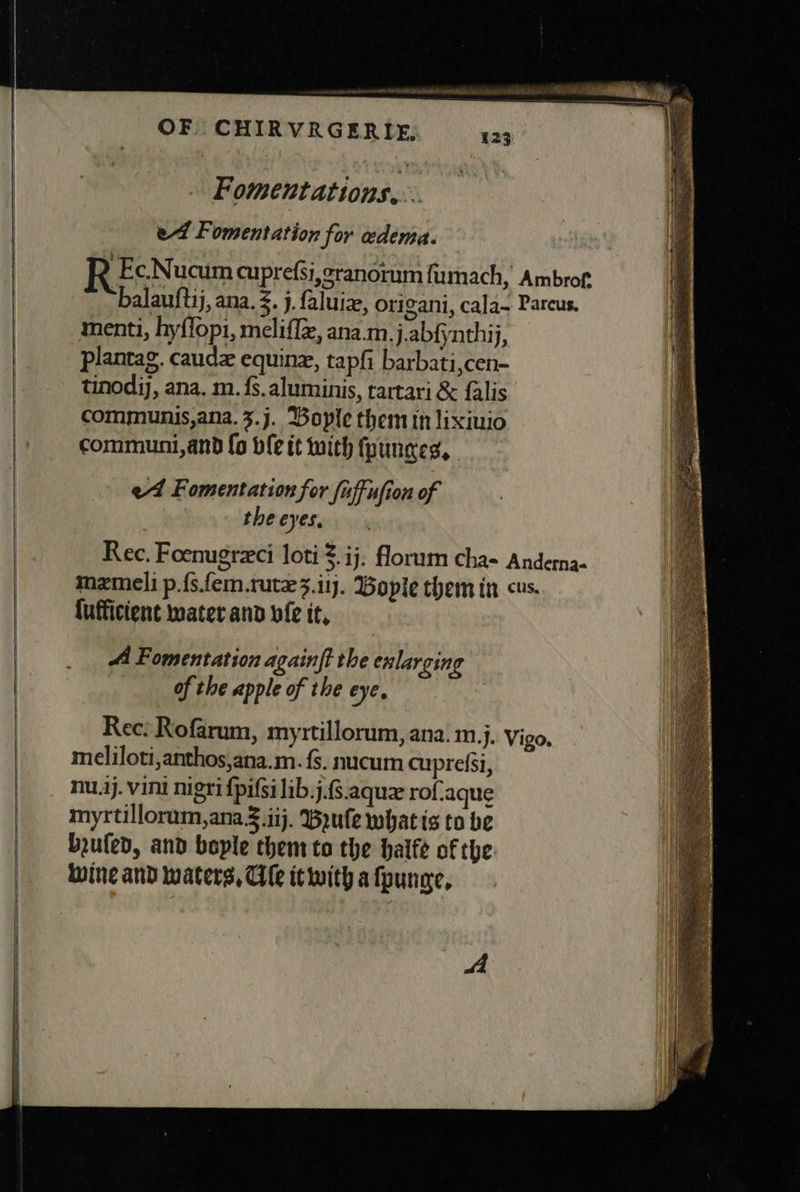 OF CHIRVRGERIE. 123
Fomentations.
A Fomentation for œdema.
REc. Nucum cupreſsi, granorum ſumach, Ambroſ.
balauſtij, ana. ℥. j. ſaluiæ, origani, cala- Pareus.
menti, hyſſopi, meliſſæ, ana. m. j. abſynthij,
plantag. caudæ equinæ, tapſi barbati, cen-
tinodij, ana. m. ſs. aluminis, tartari & ſalis
communis, ana. ʒ. j. Boyle them in lixiuio
communi, and ſo vſe it with ſpunges.
A Fomentation for ſuffuſion of
the eyes.
Rec. Fœnugræci loti ℥. ij. florum cha- Anderna-
mæmeli p. ſs. ſem. rutæ ʒ. iij. Boyle them in cus.
ſufficient water and vſe it.
A Fomentation againſt the enlarging
of the apple of the eye.
Rec: Roſarum, myrtillorum, ana. m. j. Vigo.
meliloti, anthos, ana. m. ſs. nucum cupreſsi,
nu. ij. vini nigri ſpiſsi lib. j. ſs. aquæ roſ. aque
myrtillorum, ana ℥. iij. Bruſe what is to be
bruſed, and boyle them to the halfe of the
wine and waters, Uſe it with a ſpunge,
A